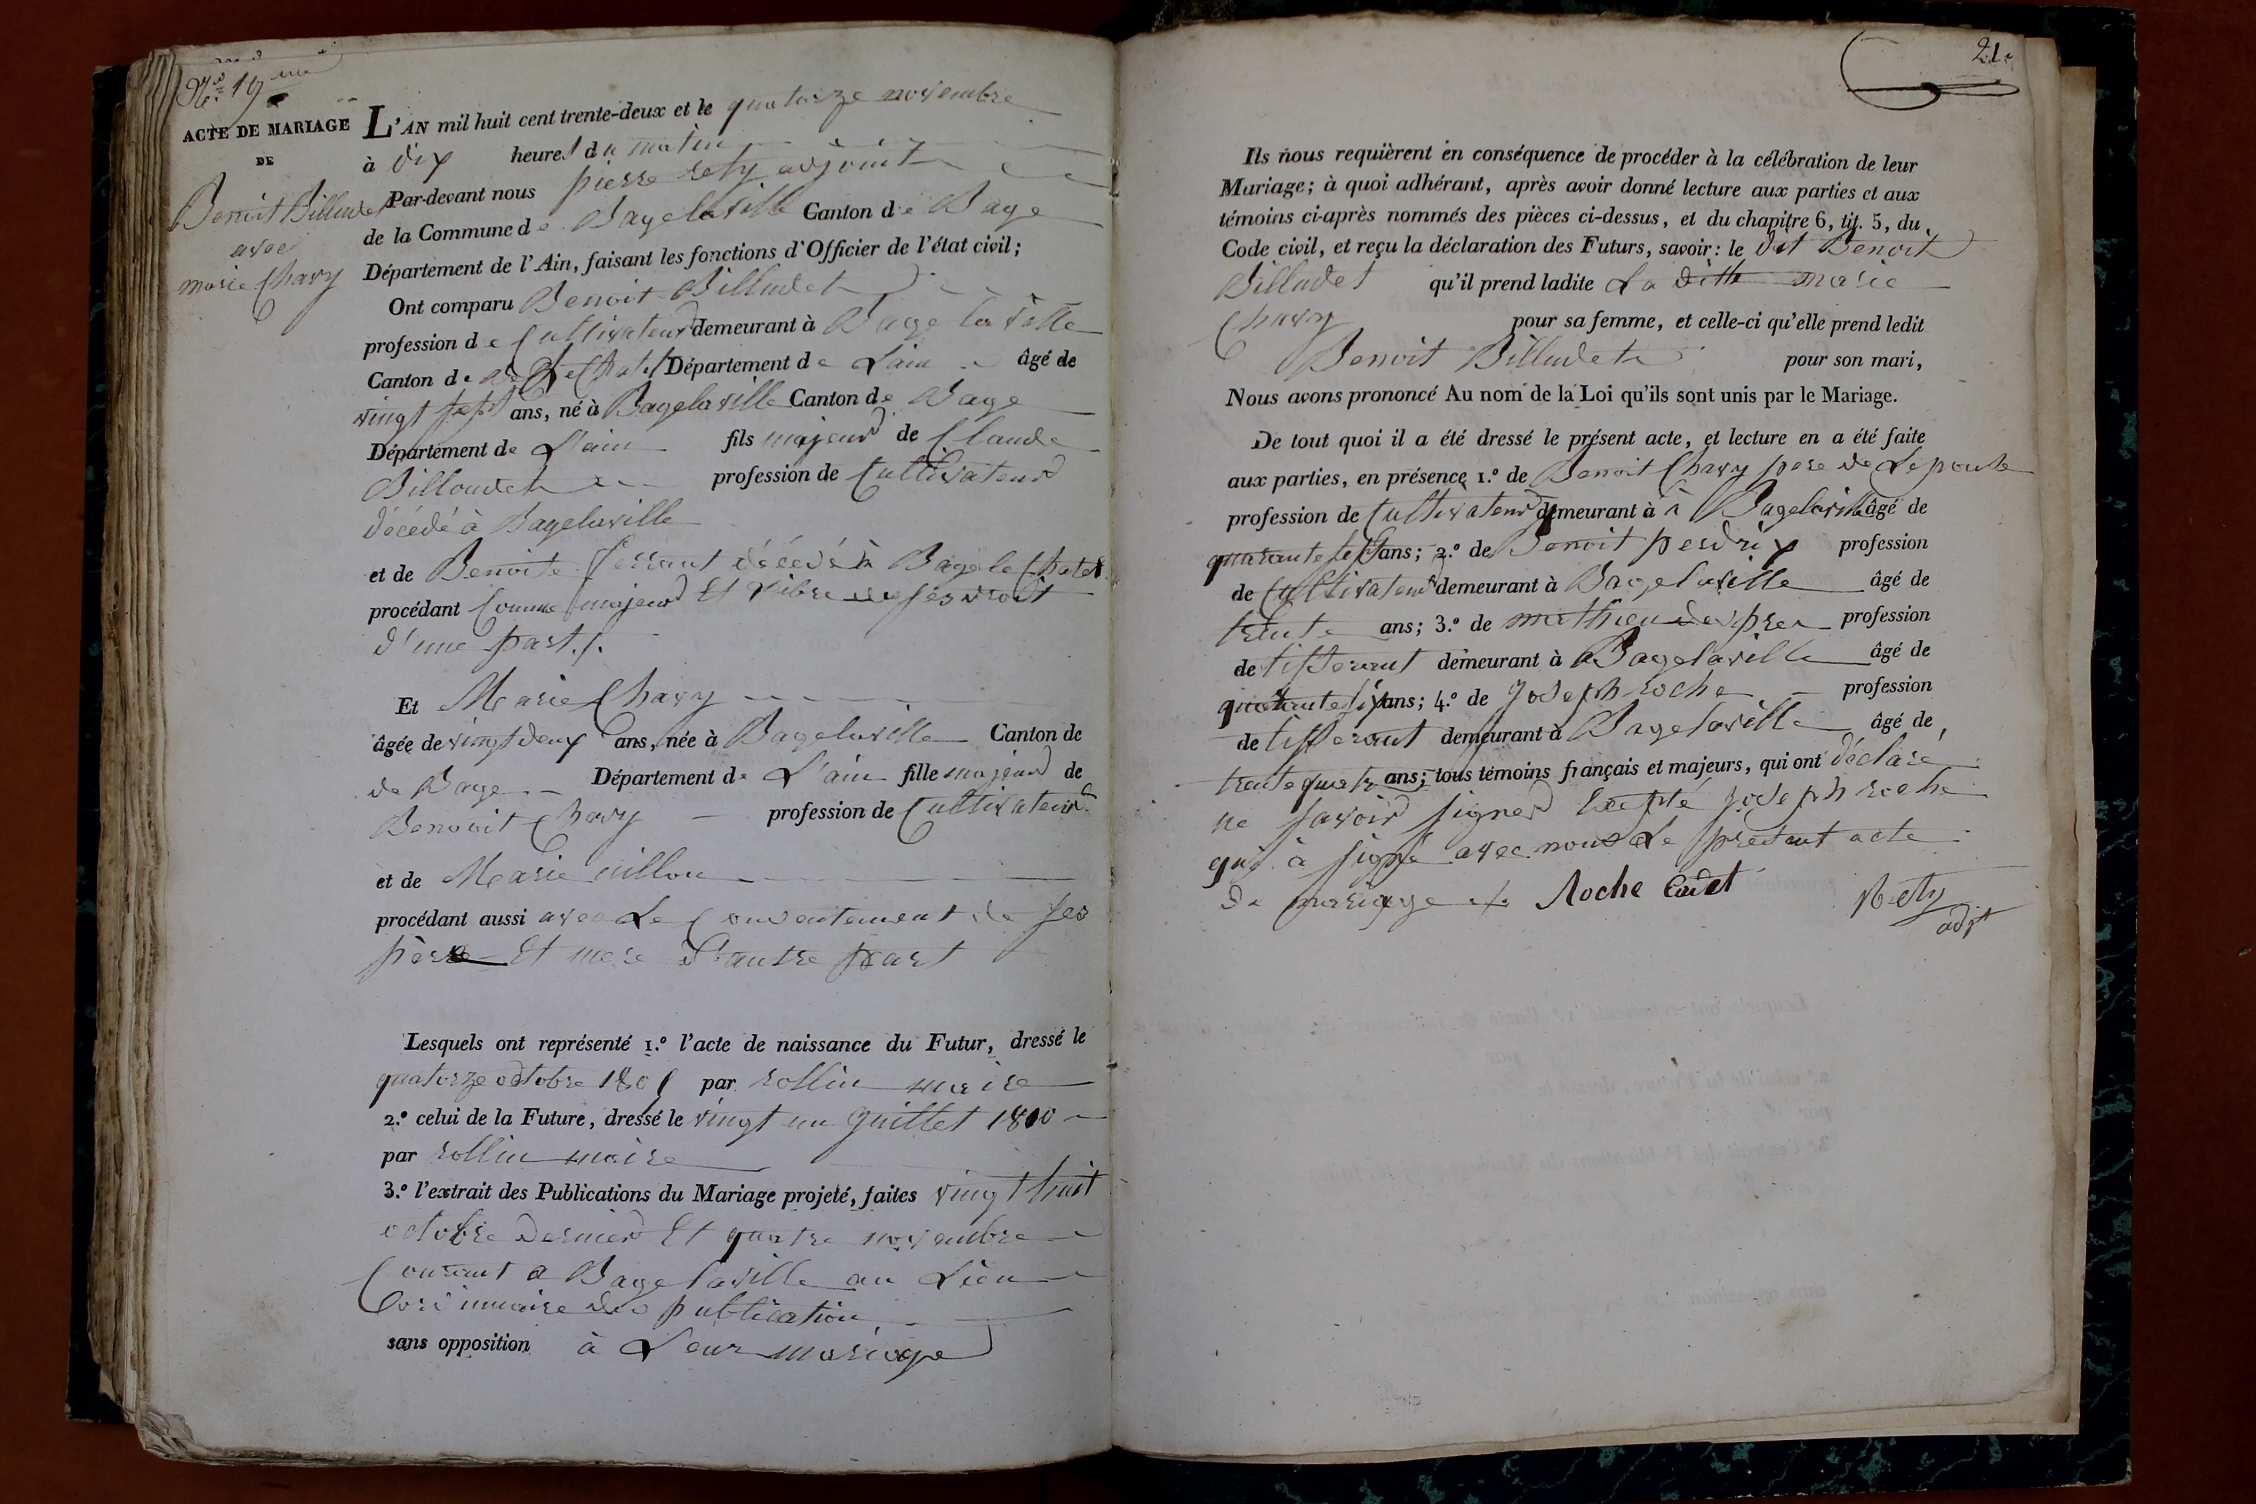 N.º 19ème
ACTE DE MARIAGE
DE
Benoit Billudet
avec
marie Chavy
L'AN mil huit cent trente-deux et le quatorze novembre
à dix heures du matin
Par-devant nous pierre rety adjoint
de la Commune de Bagelaville Canton de Bage
Département de l'Ain, faisant les fonctions d'Officier de l'état civil;
Ont comparu Benoit Billudet
profession de Cultivateur demeurant à Bage la ville
Canton de Chatel Département de Lain âgé de
vingt sept ans, né à Bagelaville Canton de Bage
Département de L'ain fils majeur de Claude
Billoudet profession de Cultivateur
décédé à Bagelaville
et de Benoite ferrant décédé à Bage le Chatel
procédant Comme majeur Et libre de ses droit
d'une part ./.
Et Marie Chavy
âgée de vingt deux ans, née à Bagelaville Canton de
de Bage Département de L'ain fille majeur de
Benoit Chavy profession de Cultivateur
et de Marie nillon
procédant aussi avec Le Consentement de ses
père Et mere d'autre part
Lesquels ont représenté 1.º l'acte de naissance du Futur, dressé le
quatorze octobre 1805 par rollin maire
2.º celui de la Future, dressé le vingt un Juillet 1810
par rollin maire
3.º l'extrait des Publications du Mariage projeté, faites vingt huit
octobre dernier Et quatre novembre
Courant a Bagelaville au Lieu
ordinnaire des publication
sans opposition à Leur mariage
21.
Ils nous requièrent en conséquence de procéder à la célébration de leur
Mariage; à quoi adhérant, après avoir donné lecture aux parties et aux
témoins ci-après nommés des pièces ci-dessus, et du chapitre 6, tit. 5, du
Code civil, et reçu la déclaration des Futurs, savoir: le dit Benoit
Billudet qu'il prend ladite La ditte marie
Chavy pour sa femme, et celle-ci qu'elle prend ledit
Benoit Billudet pour son mari,
Nous avons prononcé Au nom de la Loi qu'ils sont unis par le Mariage.
De tout quoi il a été dressé le présent acte, et lecture en a été faite
aux parties, en présence 1.º de Benoit Chavy pere de Lepouse
profession de Cultivateur demeurant à à Bagelaville âgé de
quarante sept ans; 2.º de Benoit perdrix profession
de Cultivateur demeurant à Bagelaville âgé de
trente ans; 3.º de mathieu despres profession
de tisserant demeurant à Bagelaville âgé de
quarante six ans; 4.º de Joseph roche profession
de tisserant demeurant à Bagelaville âgé de
trente quatre ans; tous témoins français et majeurs, qui ont déclaré
ne savoir signer Excepté Joseph roche
qui à signé avec nous Le présent acte
de mariage ./. Roche Cadet
Rety
adjt